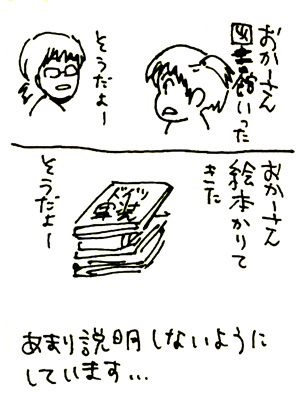 おかーさん
図書館いった
そうだよー
おかーさん
絵本かりて
きた
ドイツ
軍装
そうだよー
あまり説明しないように
しています...